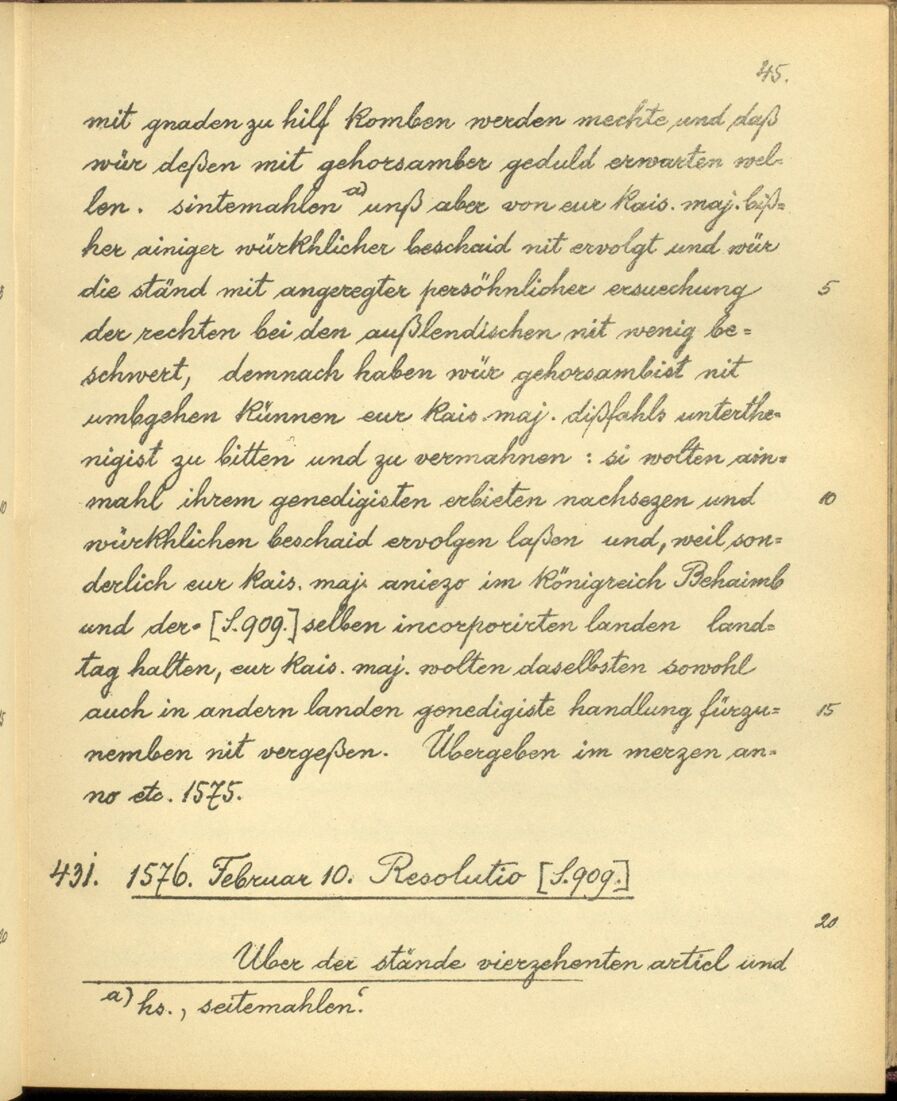 45.
mit gnaden zu hilf komben werden mechte und daß
wür deßen mit gehorsamber geduld erwarten wel-
len. sintemahlen a) unß aber von eur kais. maj. biß=
her ainiger würkhlicher beschaid nit ervolgt und wür
die ständ mit angeregter persöhnlicher ersuechung 5
der rechten bei den außlendischen nit wenig be=
schwert, demnach haben wür gehorsambist nit
umbgehen künnen eur kais. maj. dißfahls unterthe-
nigist zu bitten und zu vermahnen : si wolten ain=
mahl ihrem genedigisten erbieten nachsezen und 10
würkhlichen beschaid ervolgen laßen und, weil son=
derlich eur kais. maj. aniezo im königreich Behaimb
und der- [S. 909.] selben incorporirten landen land=
tag halten, eur kais. maj. wolten daselbsten sowohl
auch in andern landen genedigiste handlung fürzu= 15
nemben nit vergeßen. Übergeben im merzen an=
no etc. 1575.
431. 1576. Februar 10. Resolutio [S. 909.]
20
Über der stände vierzehenten articl und
a) hs., seitemahlen‘.